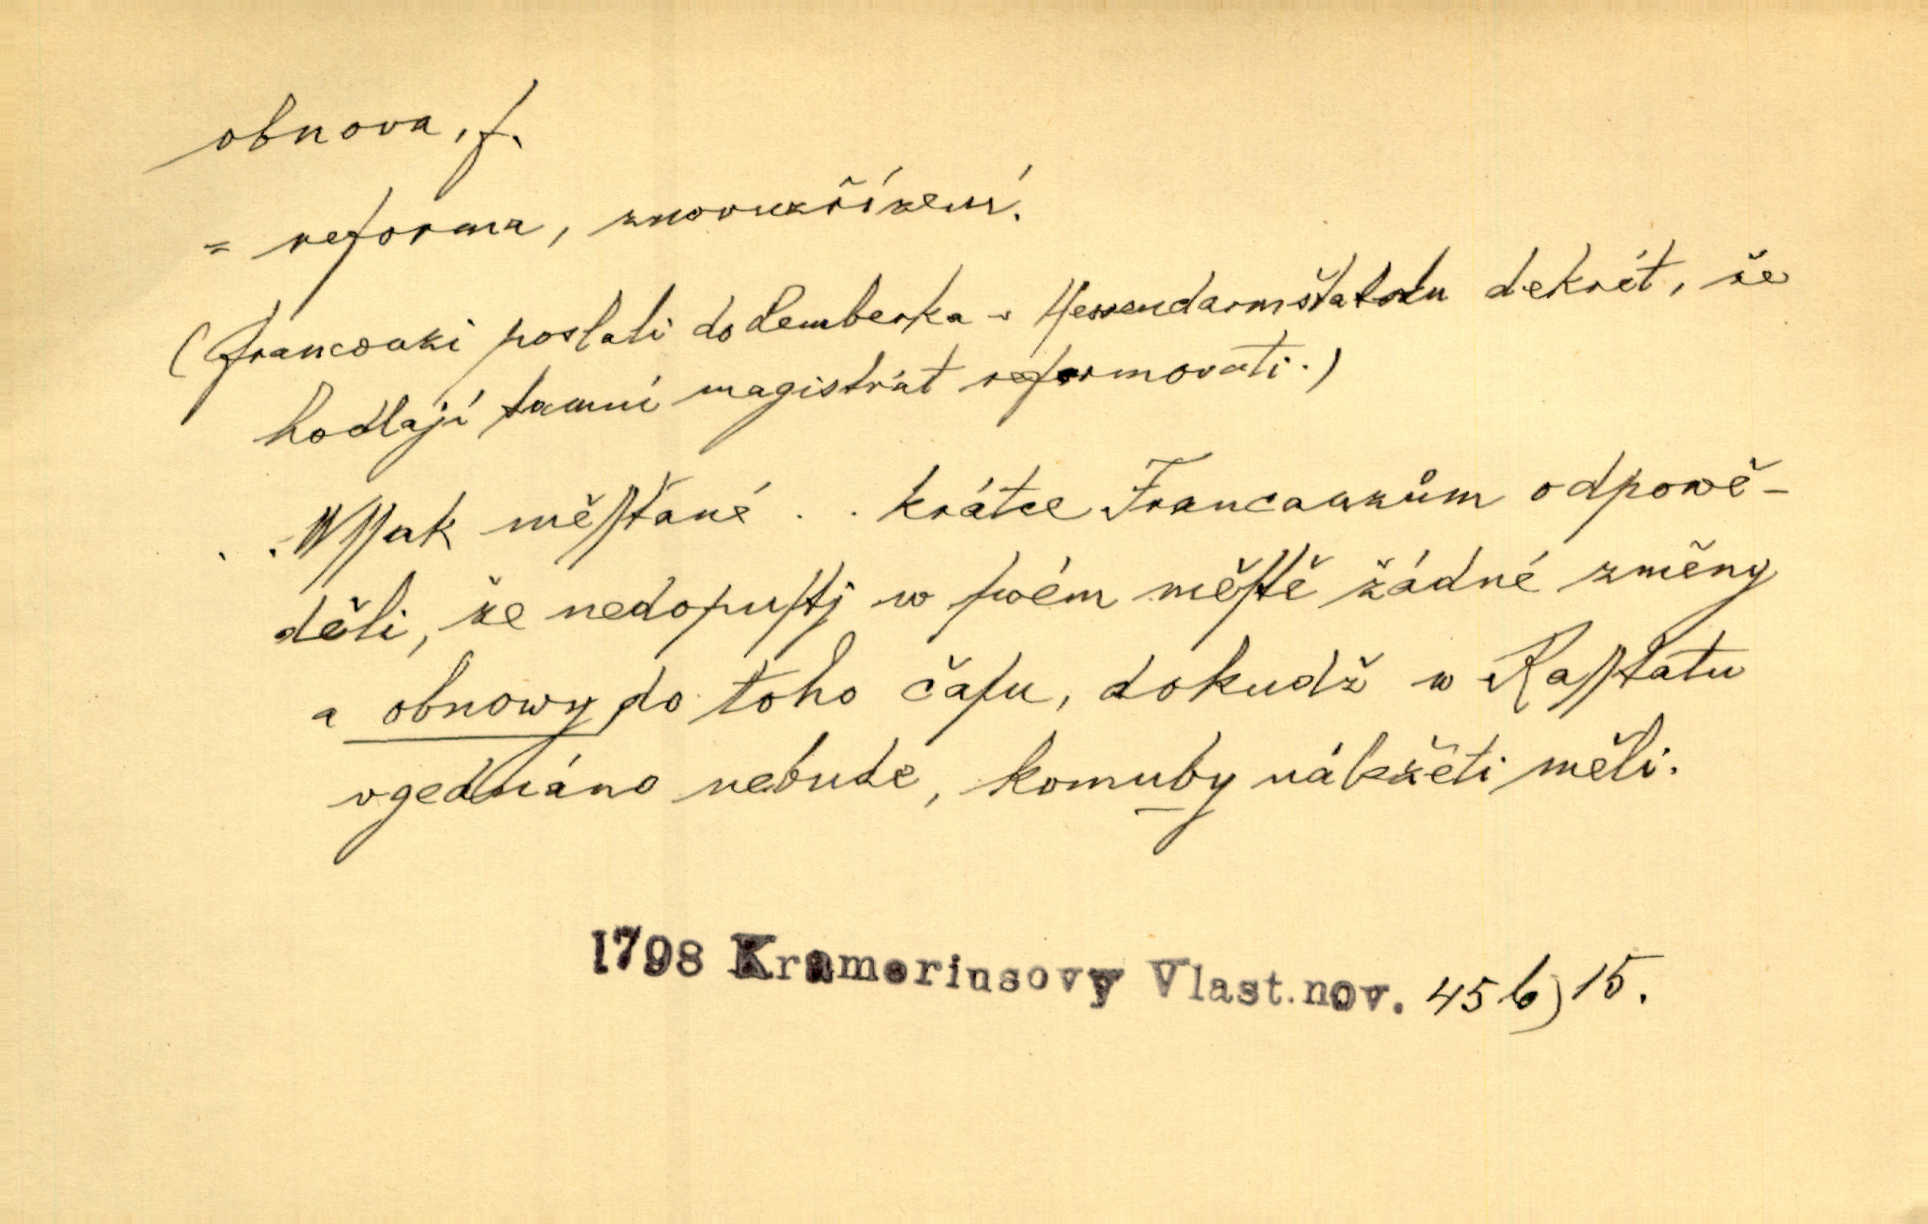 obnova, f.
= reforma, znovuzřízení.
(Francouzi poslali do Lemberka v Hessendarmštatsku dekrét, že
hodlají tamní magistrát reformovati.)
. . Wſſak měſſťané . . krátce Francauzům odpowě-
děli, že nedopuſtj w ſwém měſtě žádné změny
a obnowy do toho čaſu, dokudž w Raſſtatu
vgednáno nebude, komuby náležeti měli.
1798 Krameriusovy Vlast. nov. 45 b) 15.